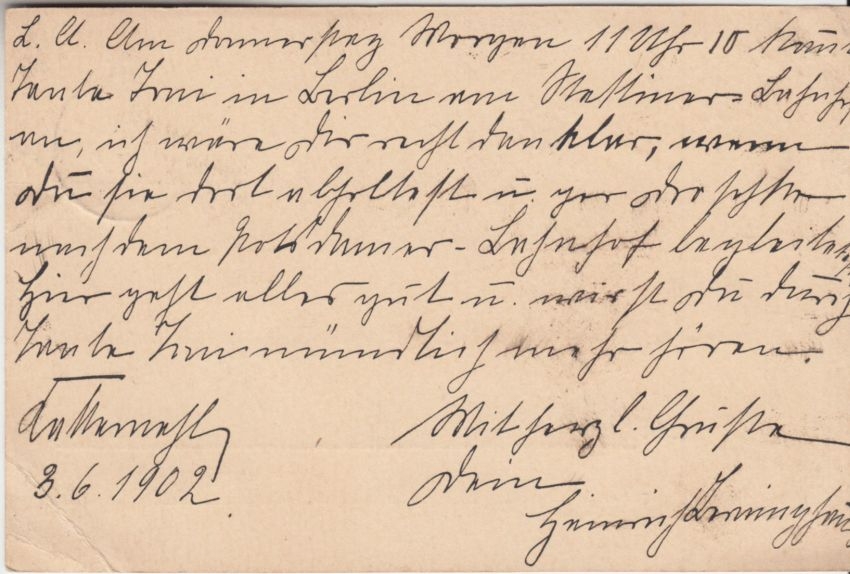 L. A. Am Donnerstag Morgen 11 Uhr 10 kommt
Tante Trui in Berlin am Stettiner-Bahnhof
an, ich wäre Dir recht dankbar, wenn
Du sie dort abholtest u. per Droschke
nach dem Potsdamer-Bahnhof begleitest.
Hier geht alles gut u. wirst Du durch
Tante mündlich mehr hören.
3.6.1902.
Mit herzl. Gruße
Dein
Heinrich